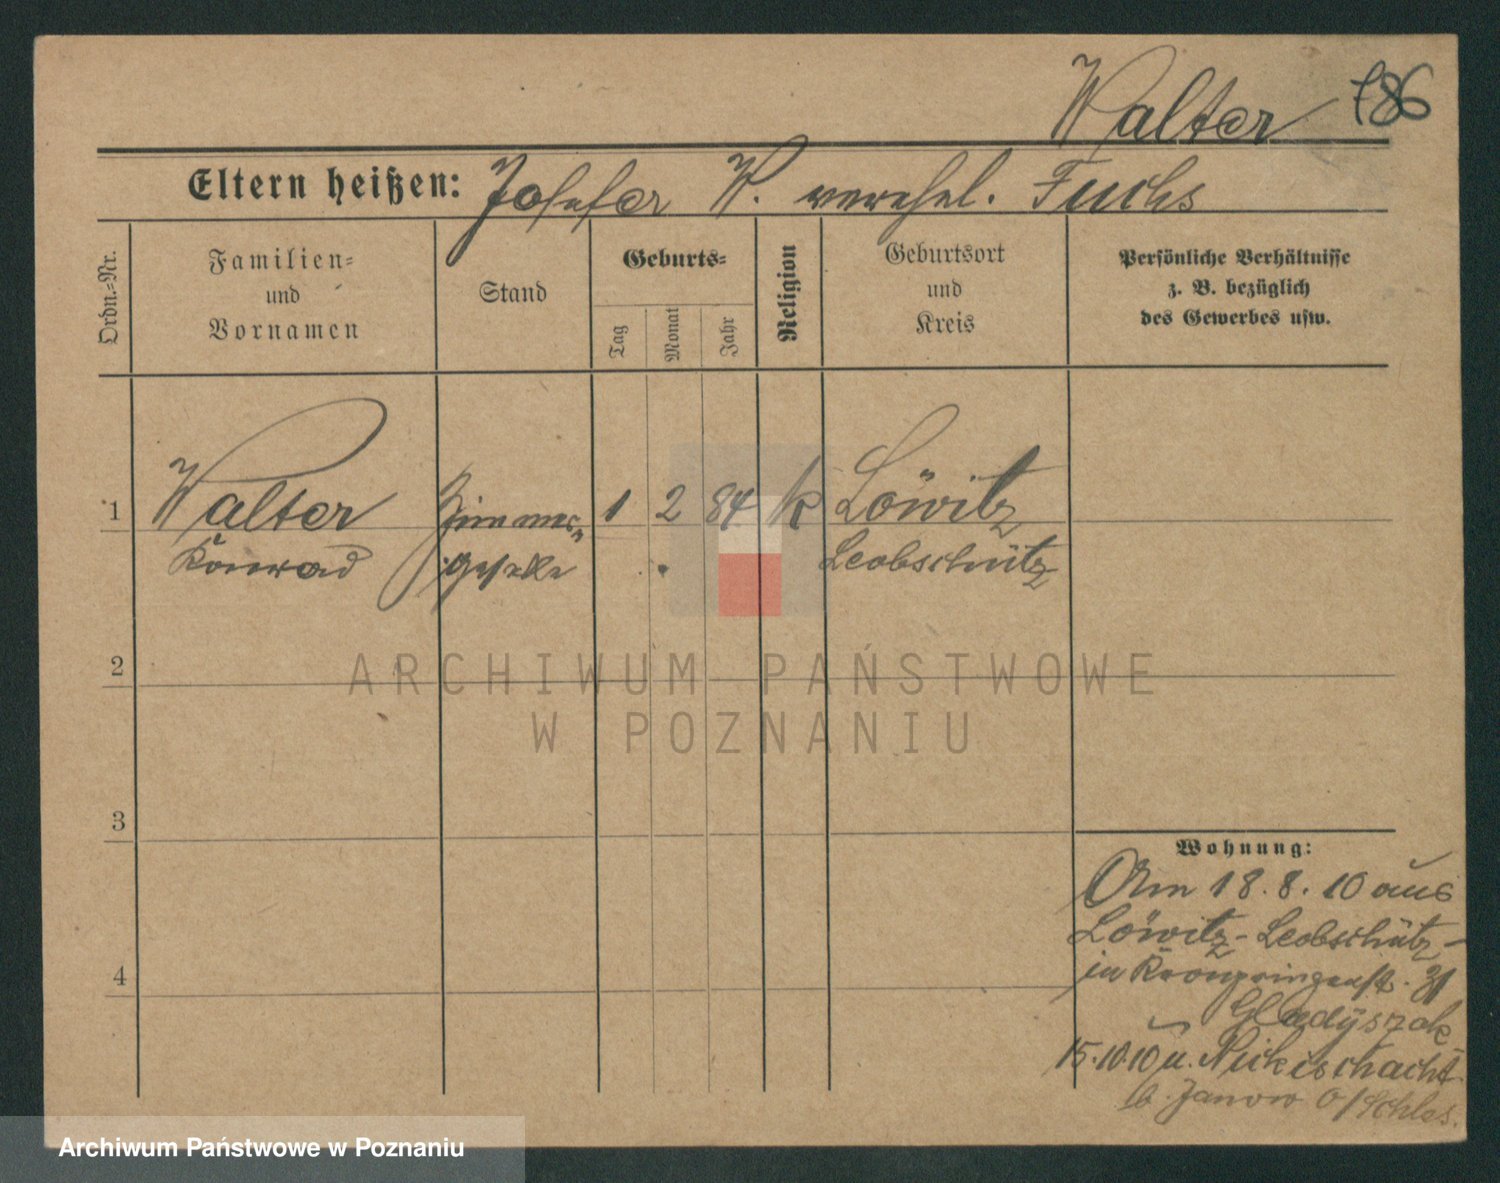 Walter 786
Eltern heißen: Josefer W. verehel. Fuchs
Ordn.-Nr.
Familien-
und
Vornamen
Stand
Geburts-
Tag
Monat
Jahr
Religion
Geburtsort
und
Kreis
Persönliche Verhältnisse
z. B. bezüglich
des Gewerbes usw.
1 Walter Zimmer- 1 2 84 k Löwitz
Konrad geselle Leobschütz
2
ARCHIWUM PAŃSTWOWE
W POZNANIU
3
Wohnung:
Am 18. 8. 10 aus
Löwitz - Leobschütz -
in Kronprinzenst. 31
4
Gladyszak
15.10.10 n. Nickischacht
b. Janow O/Schles.
Archiwum Państwowe w Poznaniu